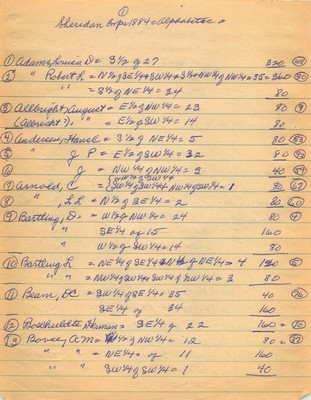 ①
Sheridan Twp = 1884 = Alphabetic =
① Adams, D = S½ of 27 320
② " Robert L = N½ of SE¼ + SW¼ + S½ of NW¼ of NW¼ = 35 = 360
" " = S½ of NE¼ = 34 80
③ Allbright, August = E½ of NW¼ = 23 80
(Albrecht?) " = E½ of SW¼ = 14 80
④ Anderson, Hansel = S½ of NE¼ = 5 80
⑤ " J P = E½ of SW¼ = 32 80
⑥ " J = NW¼ of NW¼ = 9 40
⑦ Arnold, C = SW¼ of SW¼, NW¼ of SW¼ = 1 80
⑧ " , L L = N½ of SE¼ = 2 80
⑨ Bartling, D. = W½ of NW¼ = 24 80
SE¼ of 15 160
W½ of SW¼ = 14 80
⑩ Bartling, L = NE¼ of SE¼ N½ of NE¼ = 4
" " = NW¼ of SW¼ SW¼ of NW¼ = 3 80
⑪ Beam, DC = SW¼ of SE¼ = 35 40
SE¼ of 34 160
⑫ Herman = SE¼ of 22 160
⑬ A M = of NW¼ = 12 80
" " = NE¼ = of 11 160
" " SW¼ of SW¼ = 1 40